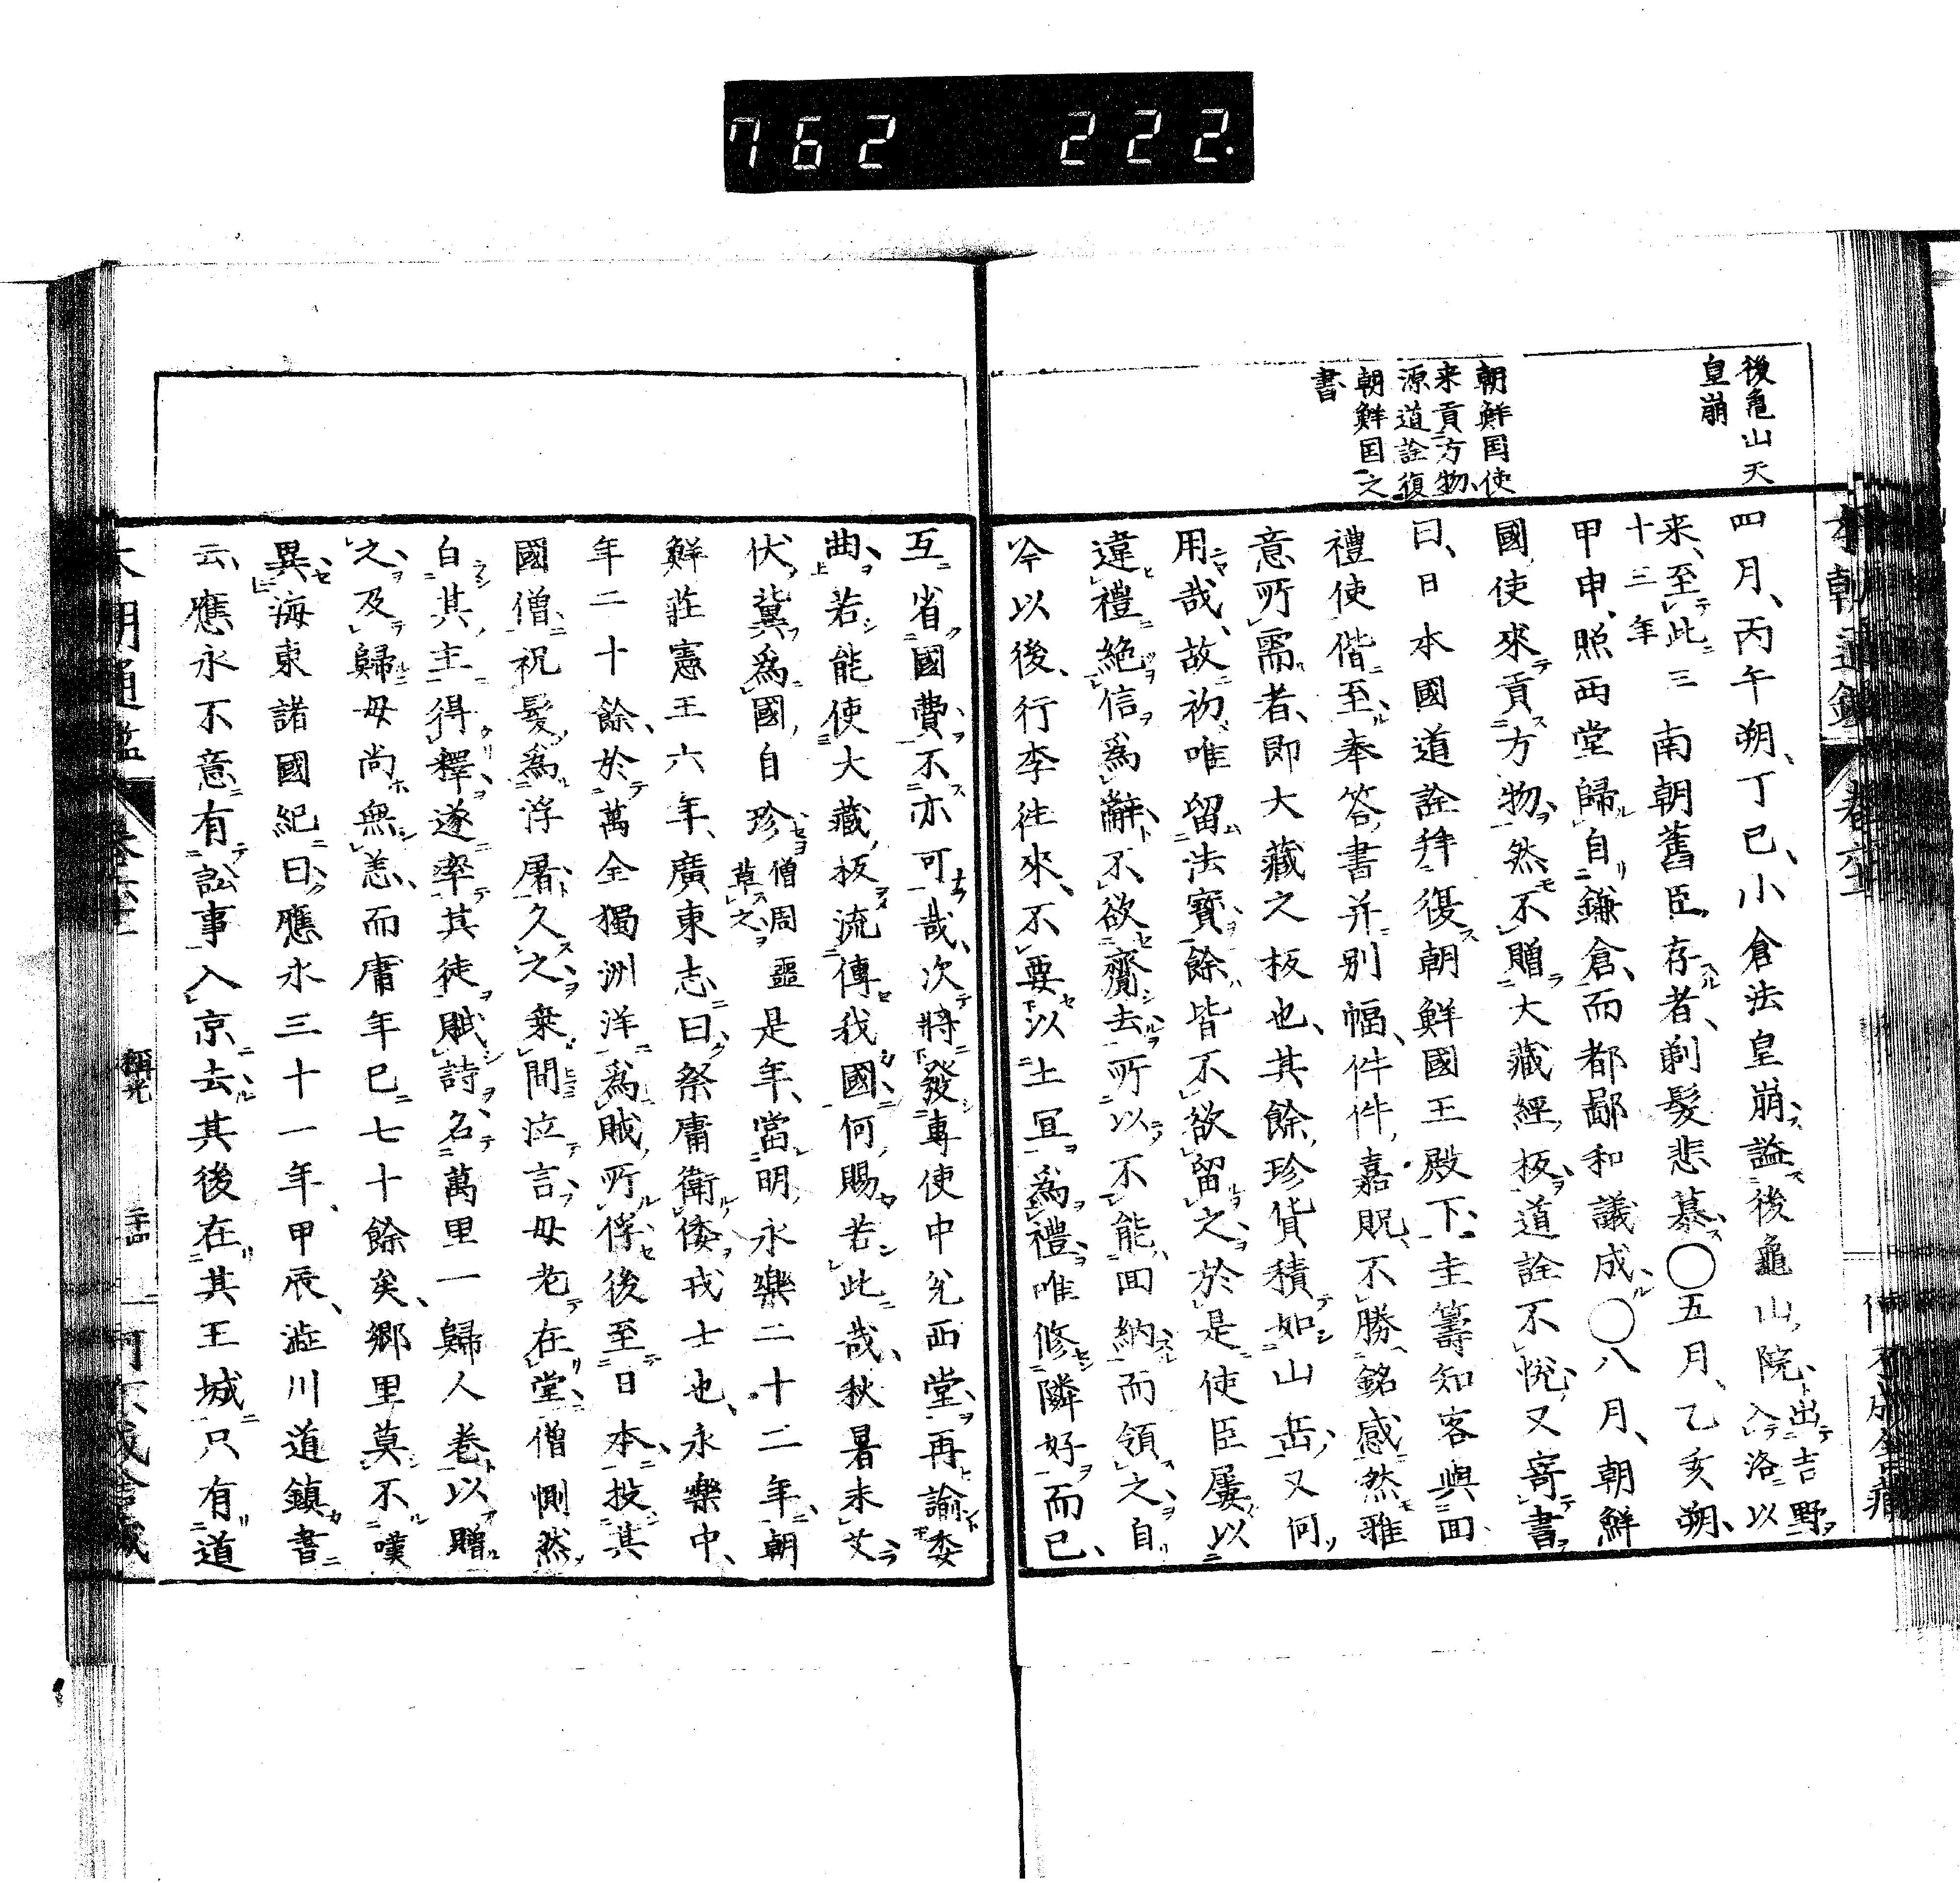 762 222.
後亀山天
皇崩
朝鮮国使
来貢方物
源道詮復
朝鮮国之
書
四月、丙午朔、丁巳、小倉法皇崩、謚後龜山院、出吉野入洛以
来、至此三十三年
南朝舊臣存者、剃髮悲慕○五月、乙亥朔、
甲申、照西堂歸自鎌倉、而都鄙和議成、○八月、朝鮮
國使來貢方物、然不贈大藏經板、道詮不悅、又寄書
曰、日本國道詮拜復朝鮮國王殿下、圭籌知客與回
禮使偕至、奉答書并別幅、件件嘉貺、不勝銘感、然雅
意所需者、即大藏之板也、其餘珍貨積如山岳、又何
用哉、故初唯留法寶、餘皆不欲留之、於是使臣屢以
違禮絶信爲辭、不欲齎去、所以不能回納而領之、自
今以後、行李徃來、不要以土冝爲禮、唯修隣好而已、
互省國費、不亦可哉、次將發專使中兊西堂、再諭委
曲、若能使大藏板流傳我國、何賜若此哉、秋暑未艾、
伏冀爲國自珍、僧周噩
草之
是年、當明永樂二十二年、朝
鮮莊憲王六年、廣東志曰、祭庸衛倭戎士也、永樂中、
年二十餘、於萬全獨洲洋爲賊所俘、後至日本、投其
國僧、祝髮爲浮屠、久之乘間泣言、母老在堂、僧惻然
白其主、得釋、遂率其徒賦詩、名萬里一歸人卷、以贈
之、及歸母尚無恙、而庸年已七十餘矣、郷里莫不嘆
異、海東諸國紀曰、應永三十一年、甲辰、澁川道鎮書
云、應永不意有訟事、入京去、其後在其王城、只有道